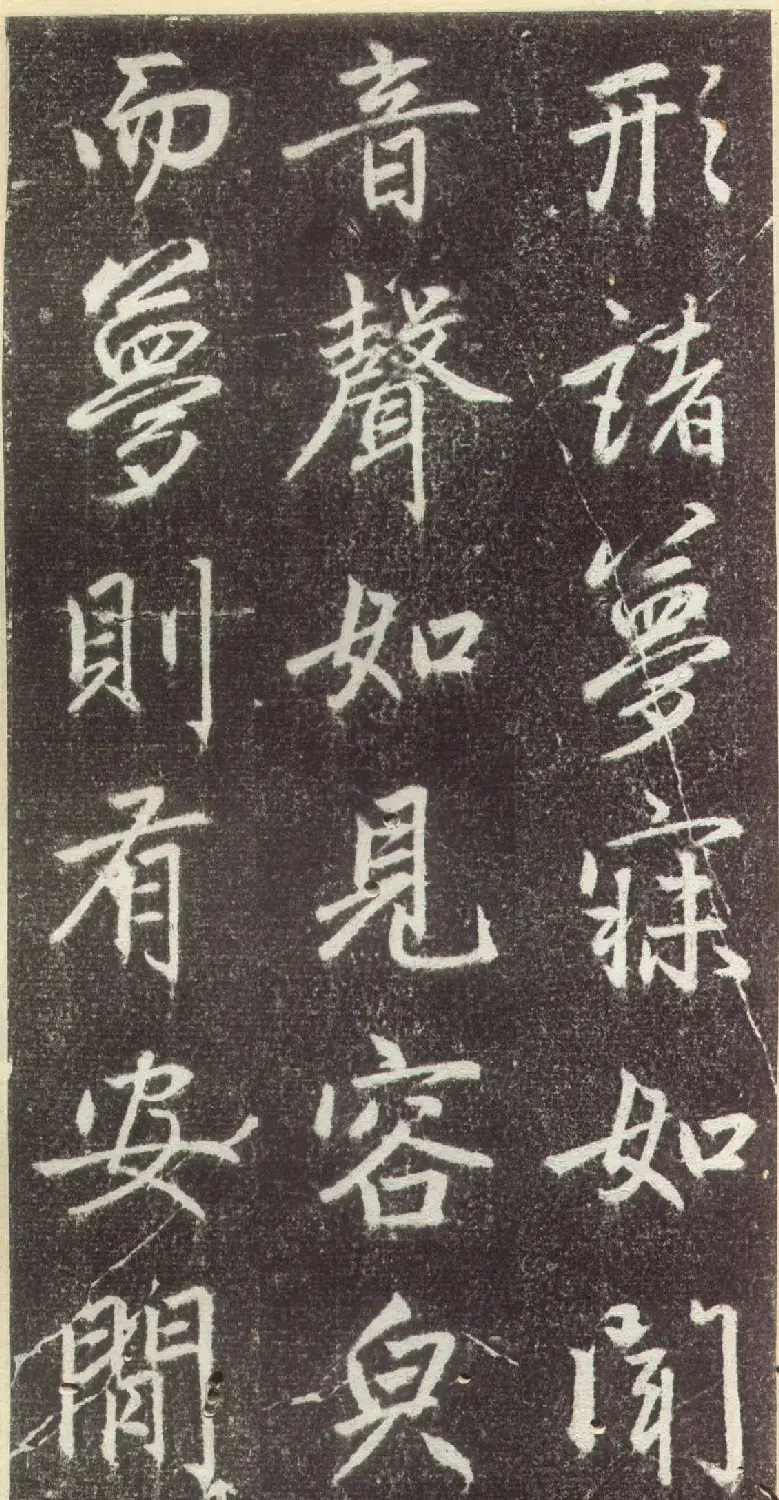 形諸夢寐如聞
音聲如見容皃
而夢則有安閒